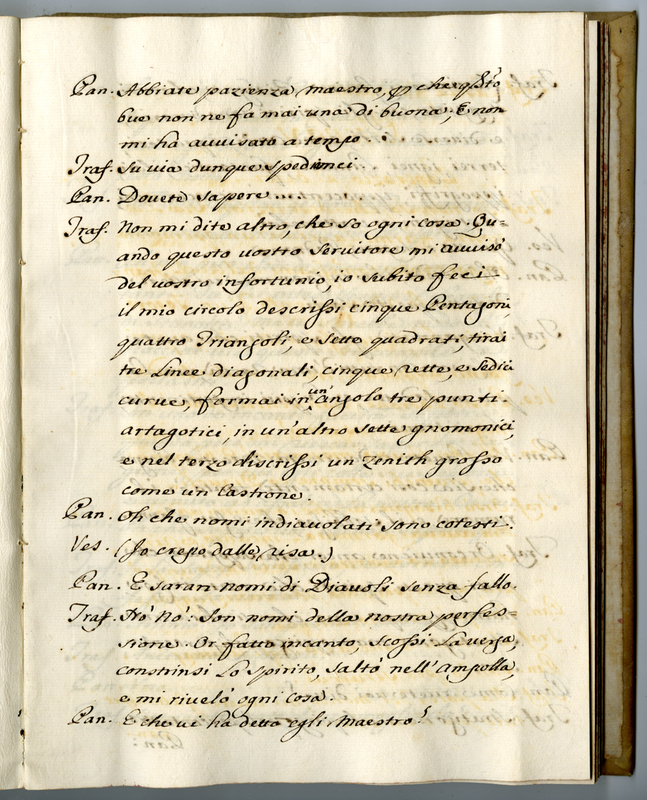 Pan. Abbiate pazienza maestro, p che qsto
bue non ne fa mai una di buona, E non
mi ha avvisato a tempo.
Traf. Su via dunque spedianci
Pan. Dovete sapere
Traf. Non mi dite altro, che so ogni cosa. Qu=
ando questo vostro servitore mi avvisò
del vostro infortunio, io subito feci
il mio circolo descrissi cinque Pentagoni,
quattro Triangoli, e sette quadrati, tirai
tre Linee diagonali, cinque rette, e sedici
curve, formai in un' angolo tre punti
artagotici, in un' altro sette gnomonici,
e nel terzo discrissi un zenith grosso
come un Castrone.
Pan. Oh che nomi indiavolati sono cotesti.
Ves. (Io crepo dalle risa.)
Pan. E saran nomi di Diavoli senza fallo.
Traf. Nò Nò: Son nomi della nostra profes=
sione. Or fatto incanto, scossi La verga,
constrinsi Lo spirito, saltò nell' Ampolla,
e mi rivelò ogni cosa.
Pan. E che vi ha detto egli Maestro?